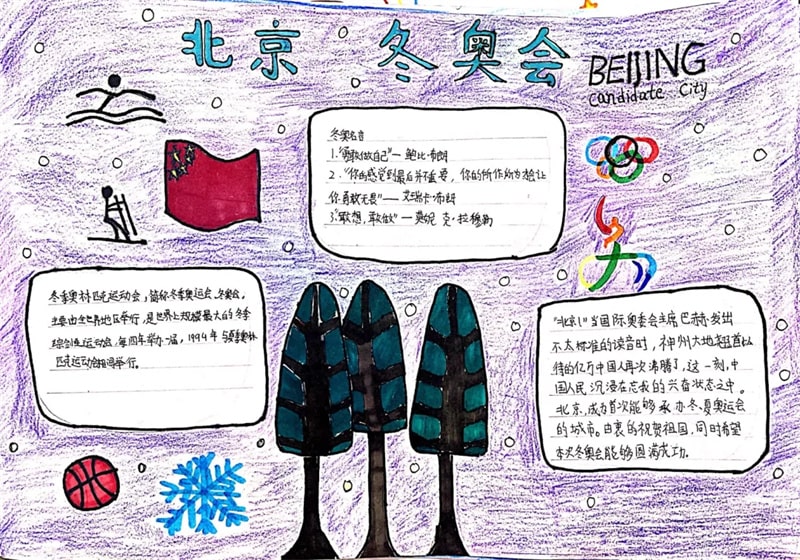 北京 冬奥会
BEIJING
Candidate City
冬奥名言
1."勇敢做自己"—鲍比·布朗
2."你的感觉到最后并不重要，你的所作所为想让
你勇敢无畏"——艾瑞卡·布朗
3."敢想，敢做"—莫妮克·拉穆勒
冬季奥林匹克运动会，简称冬季奥运会、冬奥会。
主要由全世界地区举行，是世界上规模最大的冬季
综合性运动会，每四年举办一届，1994年与夏季奥林
匹克运动会相间举行。
"北京！"当国际奥委会主席巴赫发出
不太标准的读音时，神州大地翘首以
待的亿万中国人再次沸腾了，这一刻，中
国人民沉浸在忘我的兴奋状态之中。
北京，成为首次能够承办冬、夏奥运会
的城市。由衷的祝贺祖国，同时希望
本次冬奥会能够圆满成功。